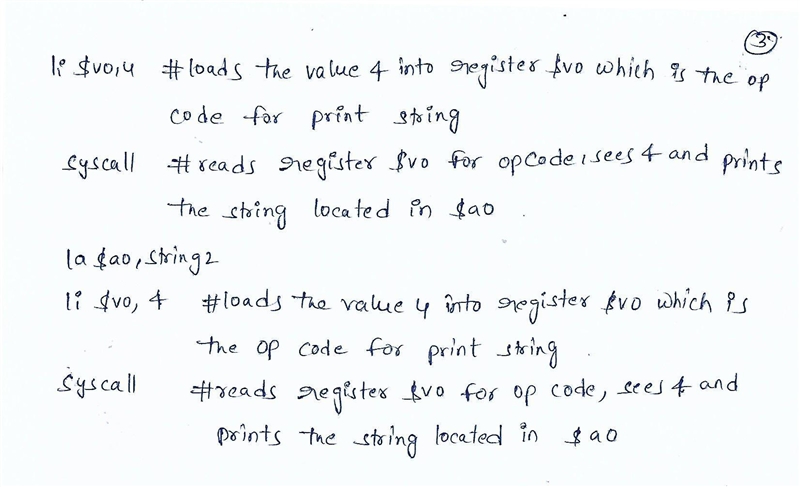 3
li $v0,4 #loads the value 4 into register $v0 which is the op
code for print string
syscall #reads register $v0 for opcode, sees 4 and prints
the string located in $a0.
la $a0, string2
li $v0, 4 #loads the value 4 into register $v0 which is
the op code for print string.
syscall #reads register $v0 for op code, sees 4 and
prints the string located in $a0